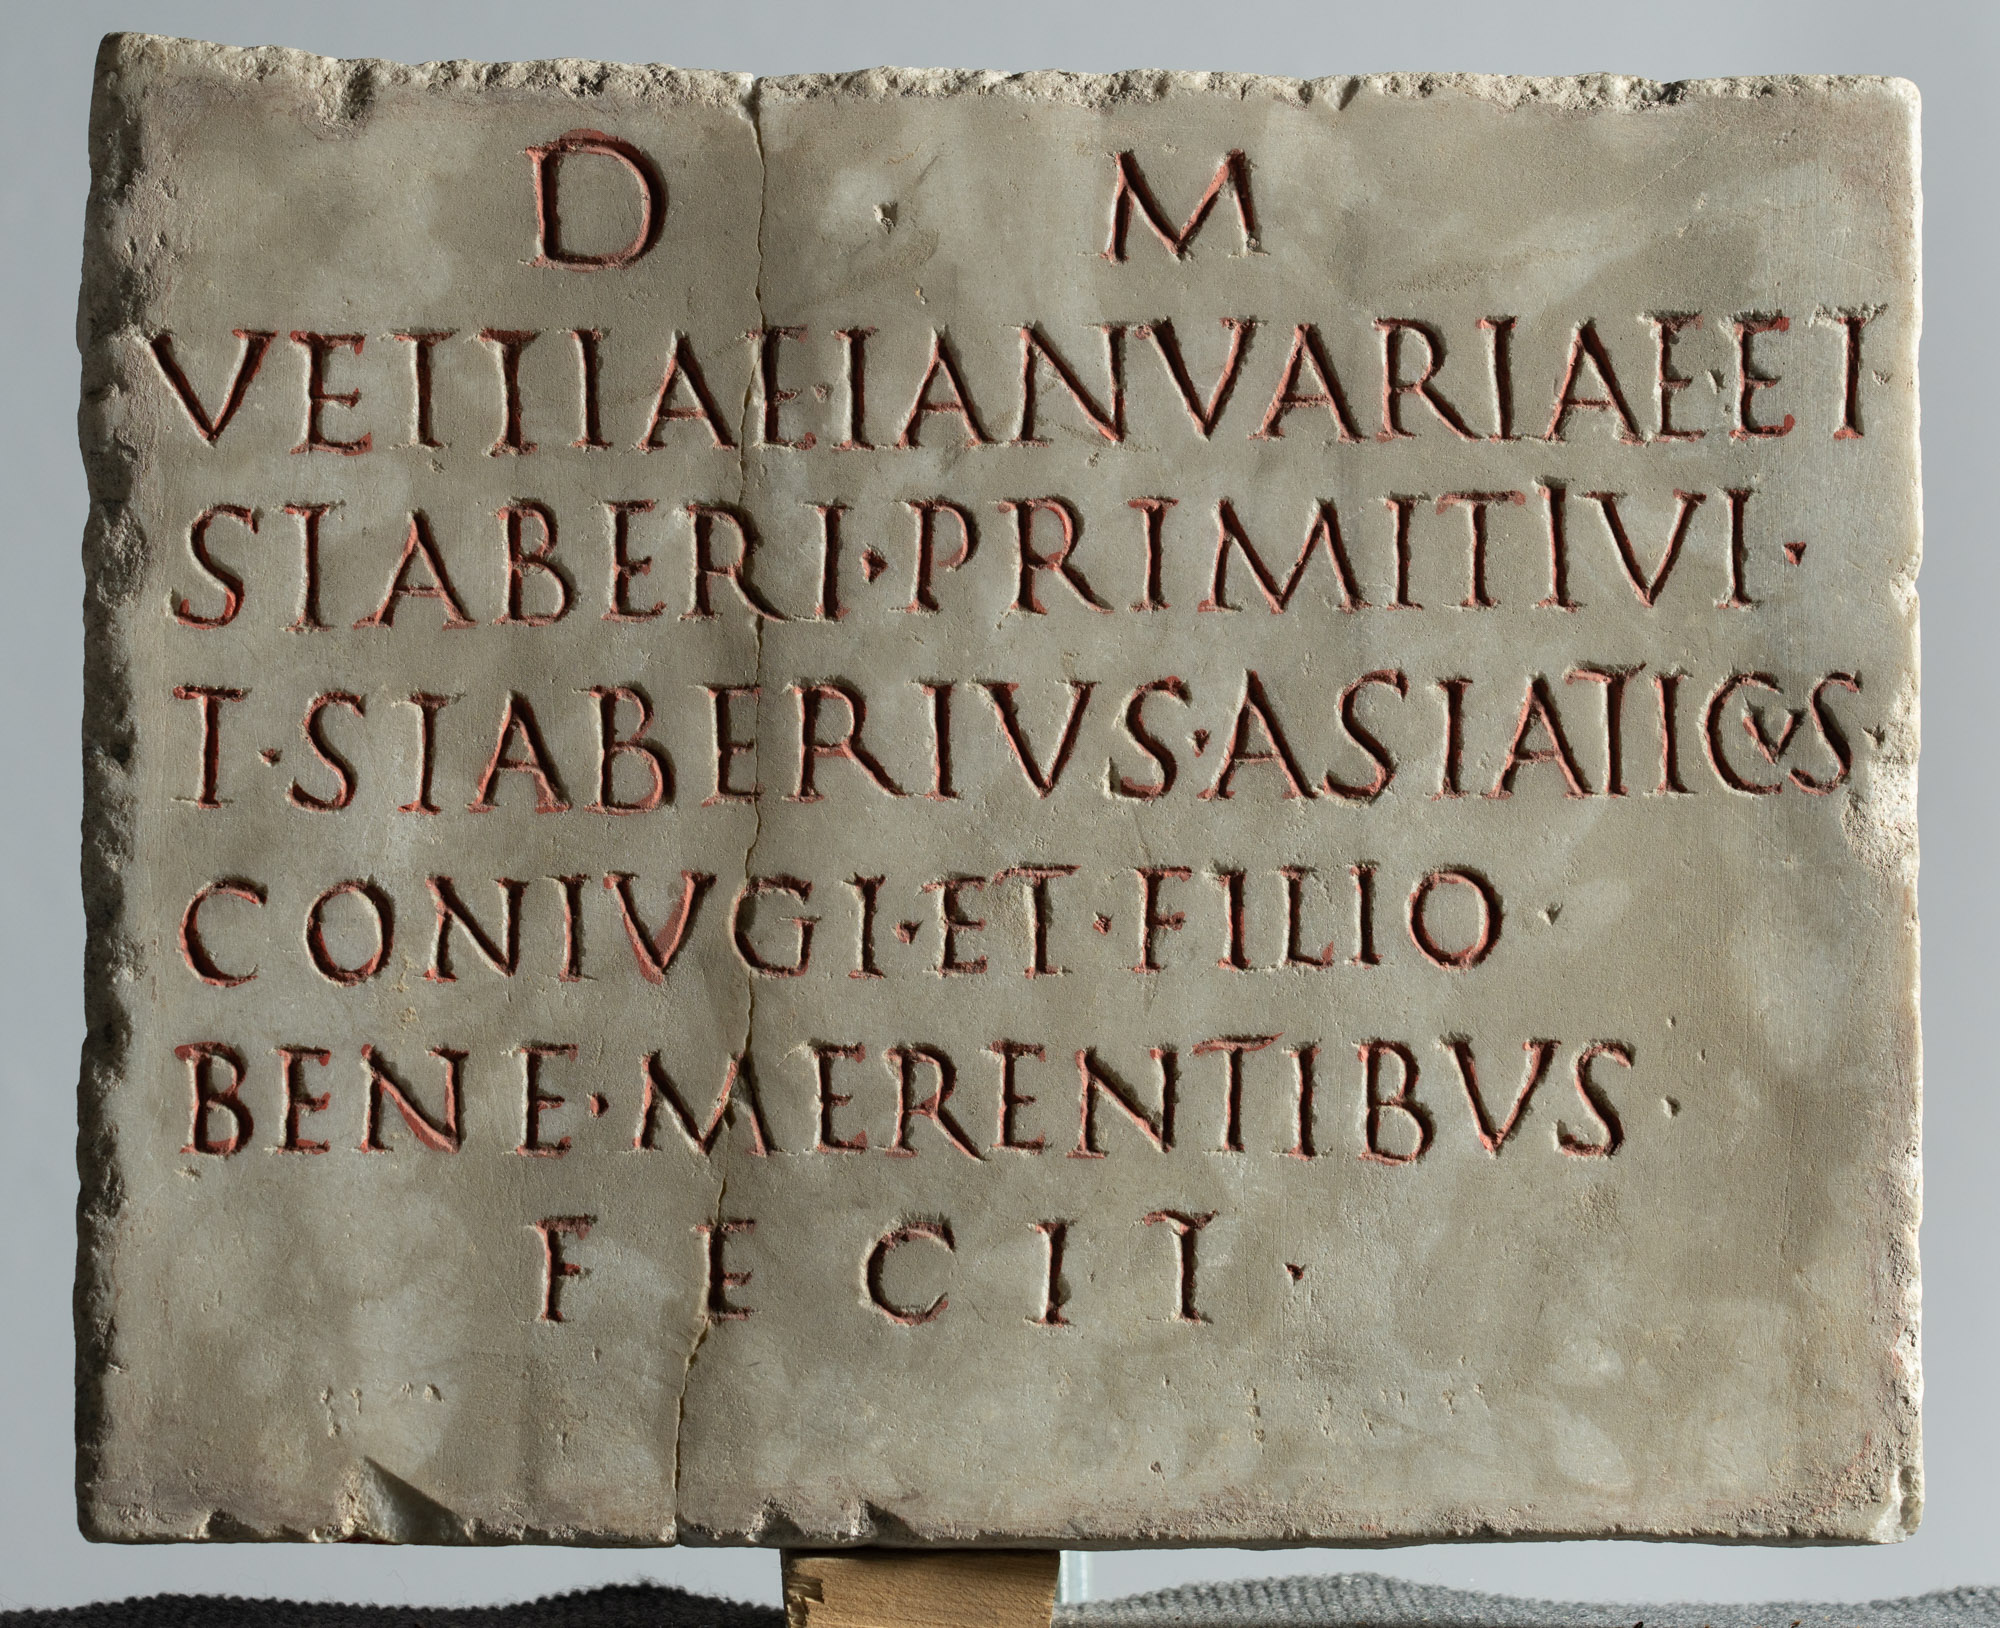 D M
VETTIAE · IANVARIAE · ET ·
STABERI · PRIMITIVI ·
T · STABERIVS · ASIATICVS ·
CONIVGI · ET · FILIO ·
BENE · MERENTIBVS ·
FECIT ·